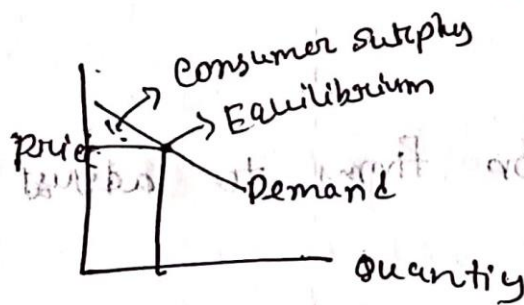 Consumer surplus
Equilibrium
Price
Demand
Quantity